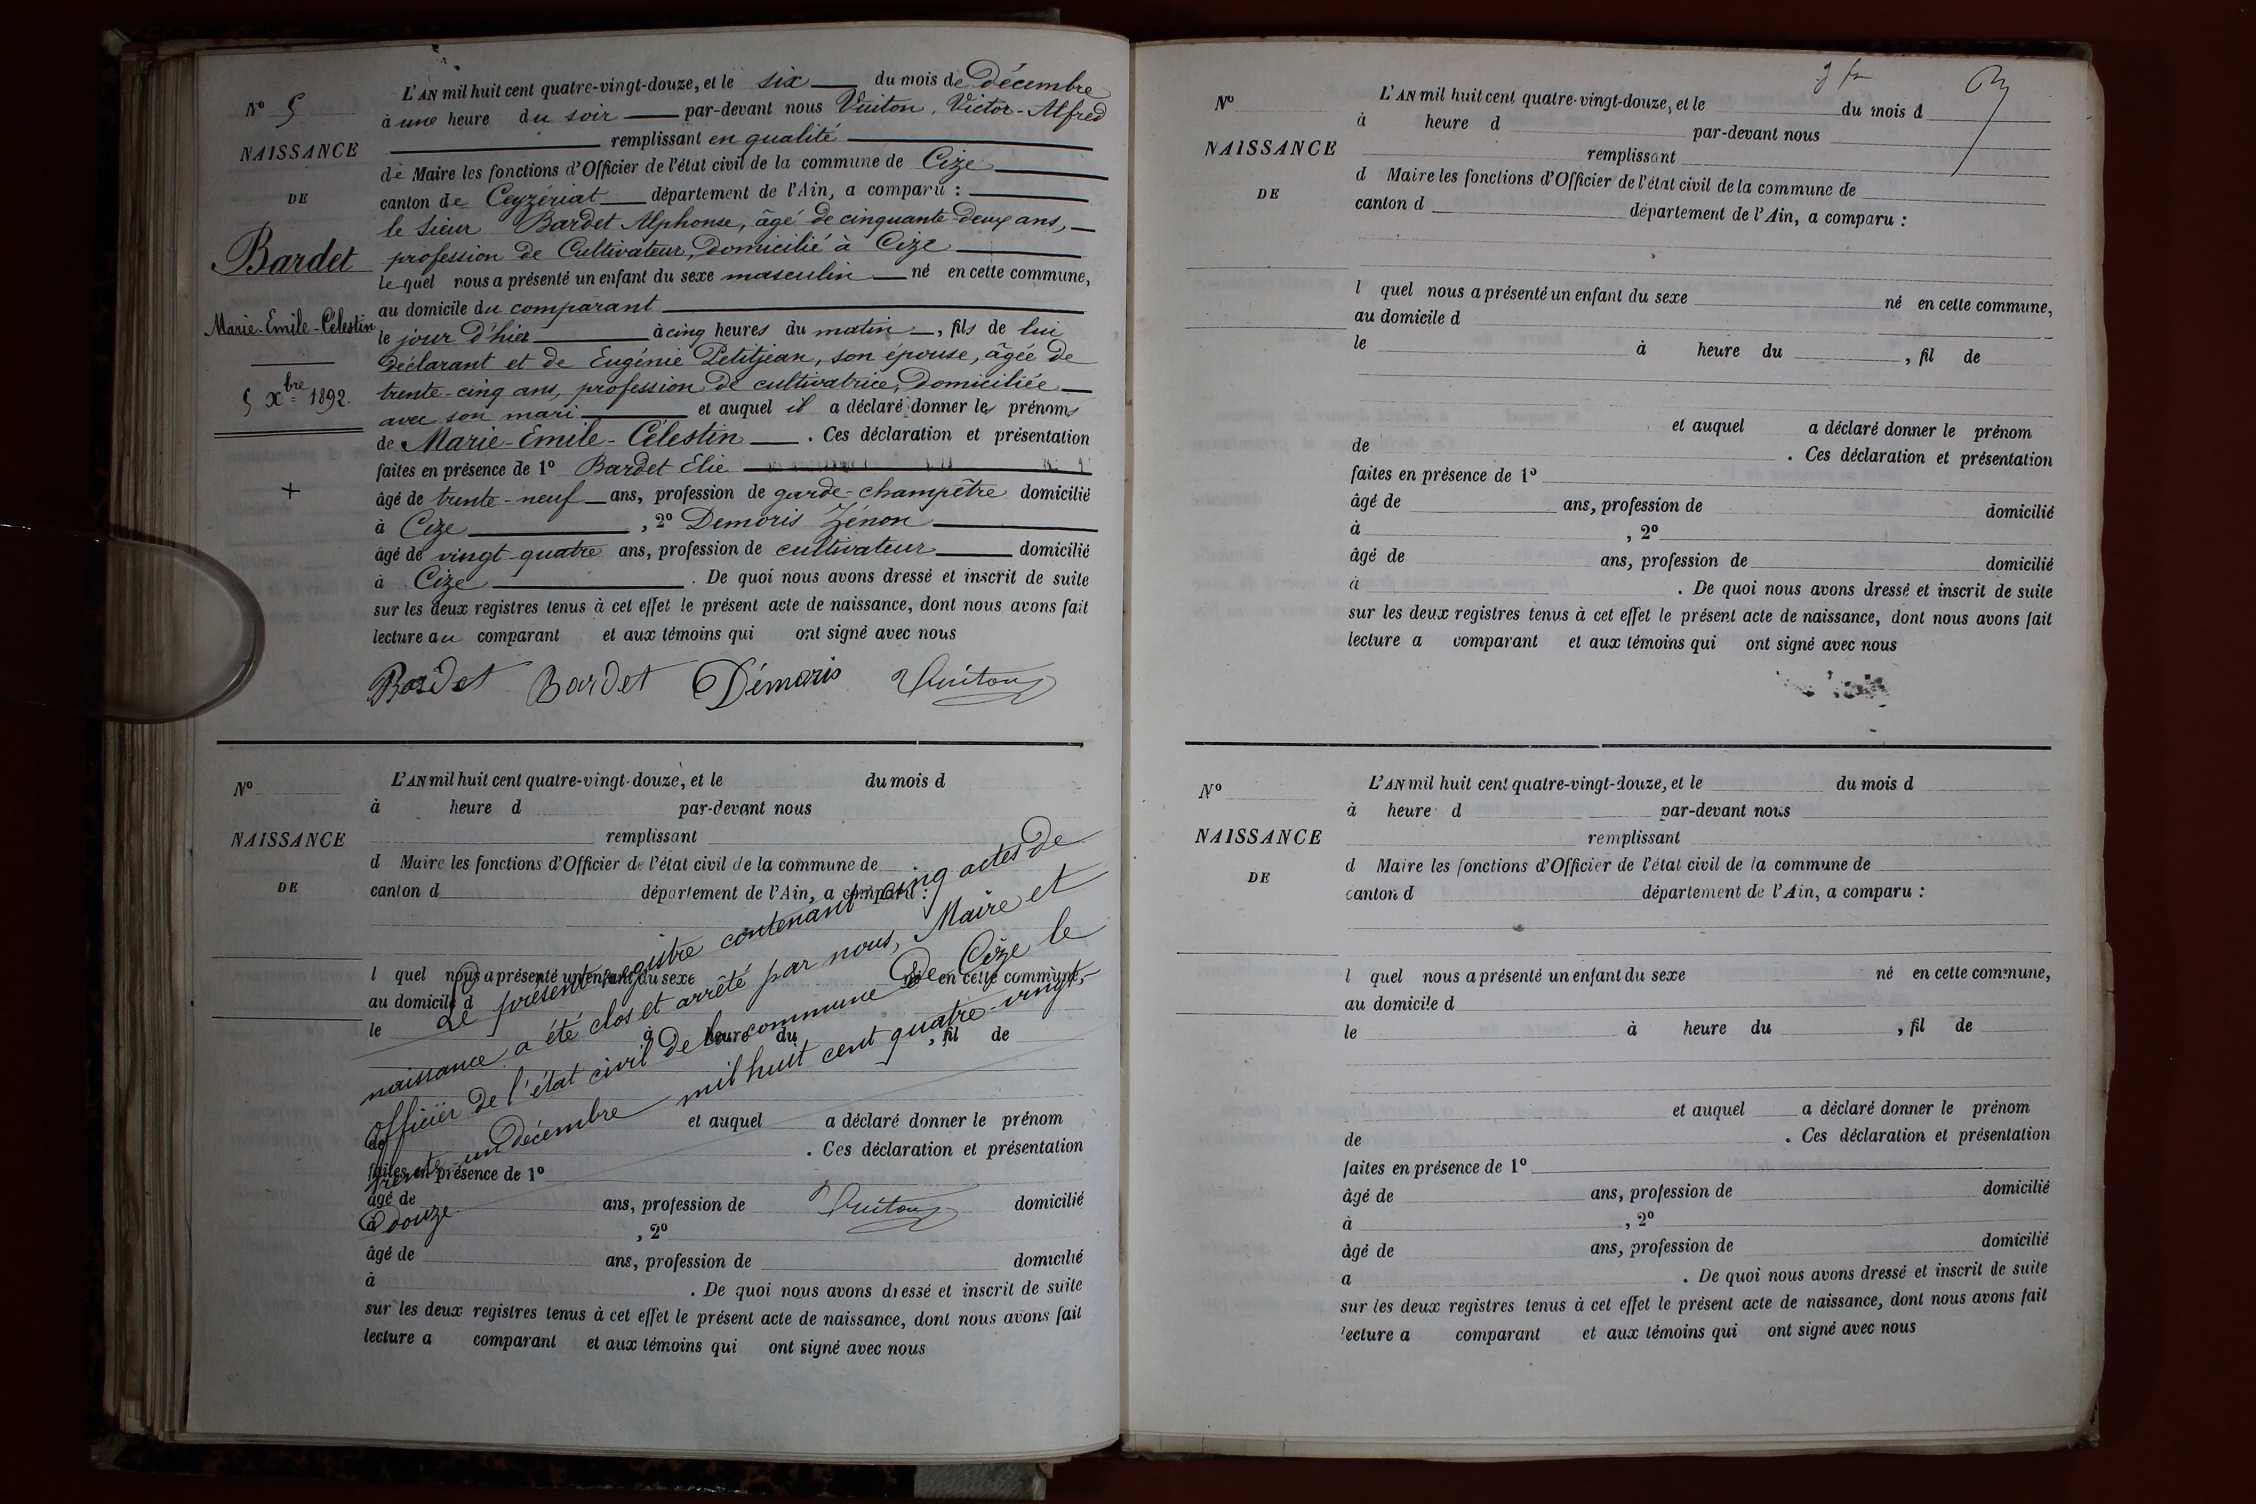 N° 5
NAISSANCE
DE
Bardet
Marie-Emile-Célestin
5 Xbre 1892.
+
L'AN mil huit cent quatre-vingt-douze, et le six du mois de Décembre
à une heure du soir par-devant nous Vuiton, Victor-Alfred
remplissant en qualité
de Maire les fonctions d'Officier de l'état civil de la commune de Cize
canton de Ceyzériat département de l'Ain, a comparu :
le sieur Bardet Alphonse, âgé de cinquante-deux ans,
profession de Cultivateur, domicilié à Cize
lequel nous a présenté un enfant du sexe masculin né en cette commune,
au domicile du comparant
le jour d'hier à cinq heures du matin, fils de lui
déclarant et de Eugénie Petitjean, son épouse, âgée de
trente-cinq ans, profession de cultivatrice, domiciliée
avec son mari et auquel il a déclaré donner les prénoms
de Marie-Emile-Célestin . Ces déclaration et présentation
faites en présence de 1° Bardet Elie
âgé de trente-neuf ans, profession de garde-champêtre domicilié
à Cize , 2° Demoris Zénon
âgé de vingt-quatre ans, profession de cultivateur domicilié
à Cize . De quoi nous avons dressé et inscrit de suite
sur les deux registres tenus à cet effet le présent acte de naissance, dont nous avons fait
lecture au comparant et aux témoins qui ont signé avec nous
Bardet Bardet Démoris Vuiton
N°
NAISSANCE
DE
L'AN mil huit cent quatre-vingt-douze, et le du mois d
à heure d par-devant nous
remplissant
d Maire les fonctions d'Officier de l'état civil de la commune de
canton d département de l'Ain, a comparu :
l quel nous a présenté un enfant du sexe né en cette commune,
au domicile d
le à heure du , fil de
et auquel a déclaré donner le prénom
de . Ces déclaration et présentation
faites en présence de 1°
âgé de ans, profession de domicilié
à , 2°
âgé de ans, profession de domicilié
à . De quoi nous avons dressé et inscrit de suite
sur les deux registres tenus à cet effet le présent acte de naissance, dont nous avons fait
lecture a comparant et aux témoins qui ont signé avec nous
Le présent registre contenant cinq actes de
naissance a été clos et arrêté par nous, Maire et
officier de l'état civil de la commune de Cize le
trente-un décembre mil huit cent quatre-vingt-
douze
Vuiton
N°
NAISSANCE
DE
L'AN mil huit cent quatre-vingt-douze, et le du mois d
à heure d par-devant nous
remplissant
d Maire les fonctions d'Officier de l'état civil de la commune de
canton d département de l'Ain, a comparu :
l quel nous a présenté un enfant du sexe né en cette commune,
au domicile d
le à heure du , fil de
et auquel a déclaré donner le prénom
de . Ces déclaration et présentation
faites en présence de 1°
âgé de ans, profession de domicilié
à , 2°
âgé de ans, profession de domicilié
à . De quoi nous avons dressé et inscrit de suite
sur les deux registres tenus à cet effet le présent acte de naissance, dont nous avons fait
lecture a comparant et aux témoins qui ont signé avec nous
N°
NAISSANCE
DE
L'AN mil huit cent quatre-vingt-douze, et le du mois d
à heure d par-devant nous
remplissant
d Maire les fonctions d'Officier de l'état civil de la commune de
canton d département de l'Ain, a comparu :
l quel nous a présenté un enfant du sexe né en cette commune,
au domicile d
le à heure du , fil de
et auquel a déclaré donner le prénom
de . Ces déclaration et présentation
faites en présence de 1°
âgé de ans, profession de domicilié
à , 2°
âgé de ans, profession de domicilié
a . De quoi nous avons dressé et inscrit de suite
sur les deux registres tenus à cet effet le présent acte de naissance, dont nous avons fait
lecture a comparant et aux témoins qui ont signé avec nous